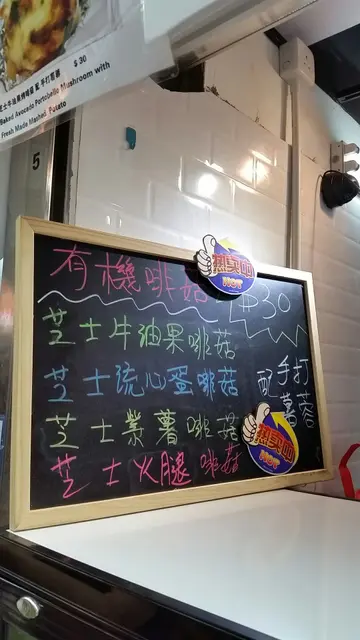 芝士牛油果焗啡菇 配 手打薯蓉
$30
Baked Avocado Portobello Mushroom with
Fresh Made Mashed Potato
5
有機啡菇
$30
芝士牛油果啡菇
芝士流心蛋啡菇
芝士紫薯啡菇
芝士火腿啡菇
配手打
薯蓉
熱賣品
HOT
熱賣品
HOT